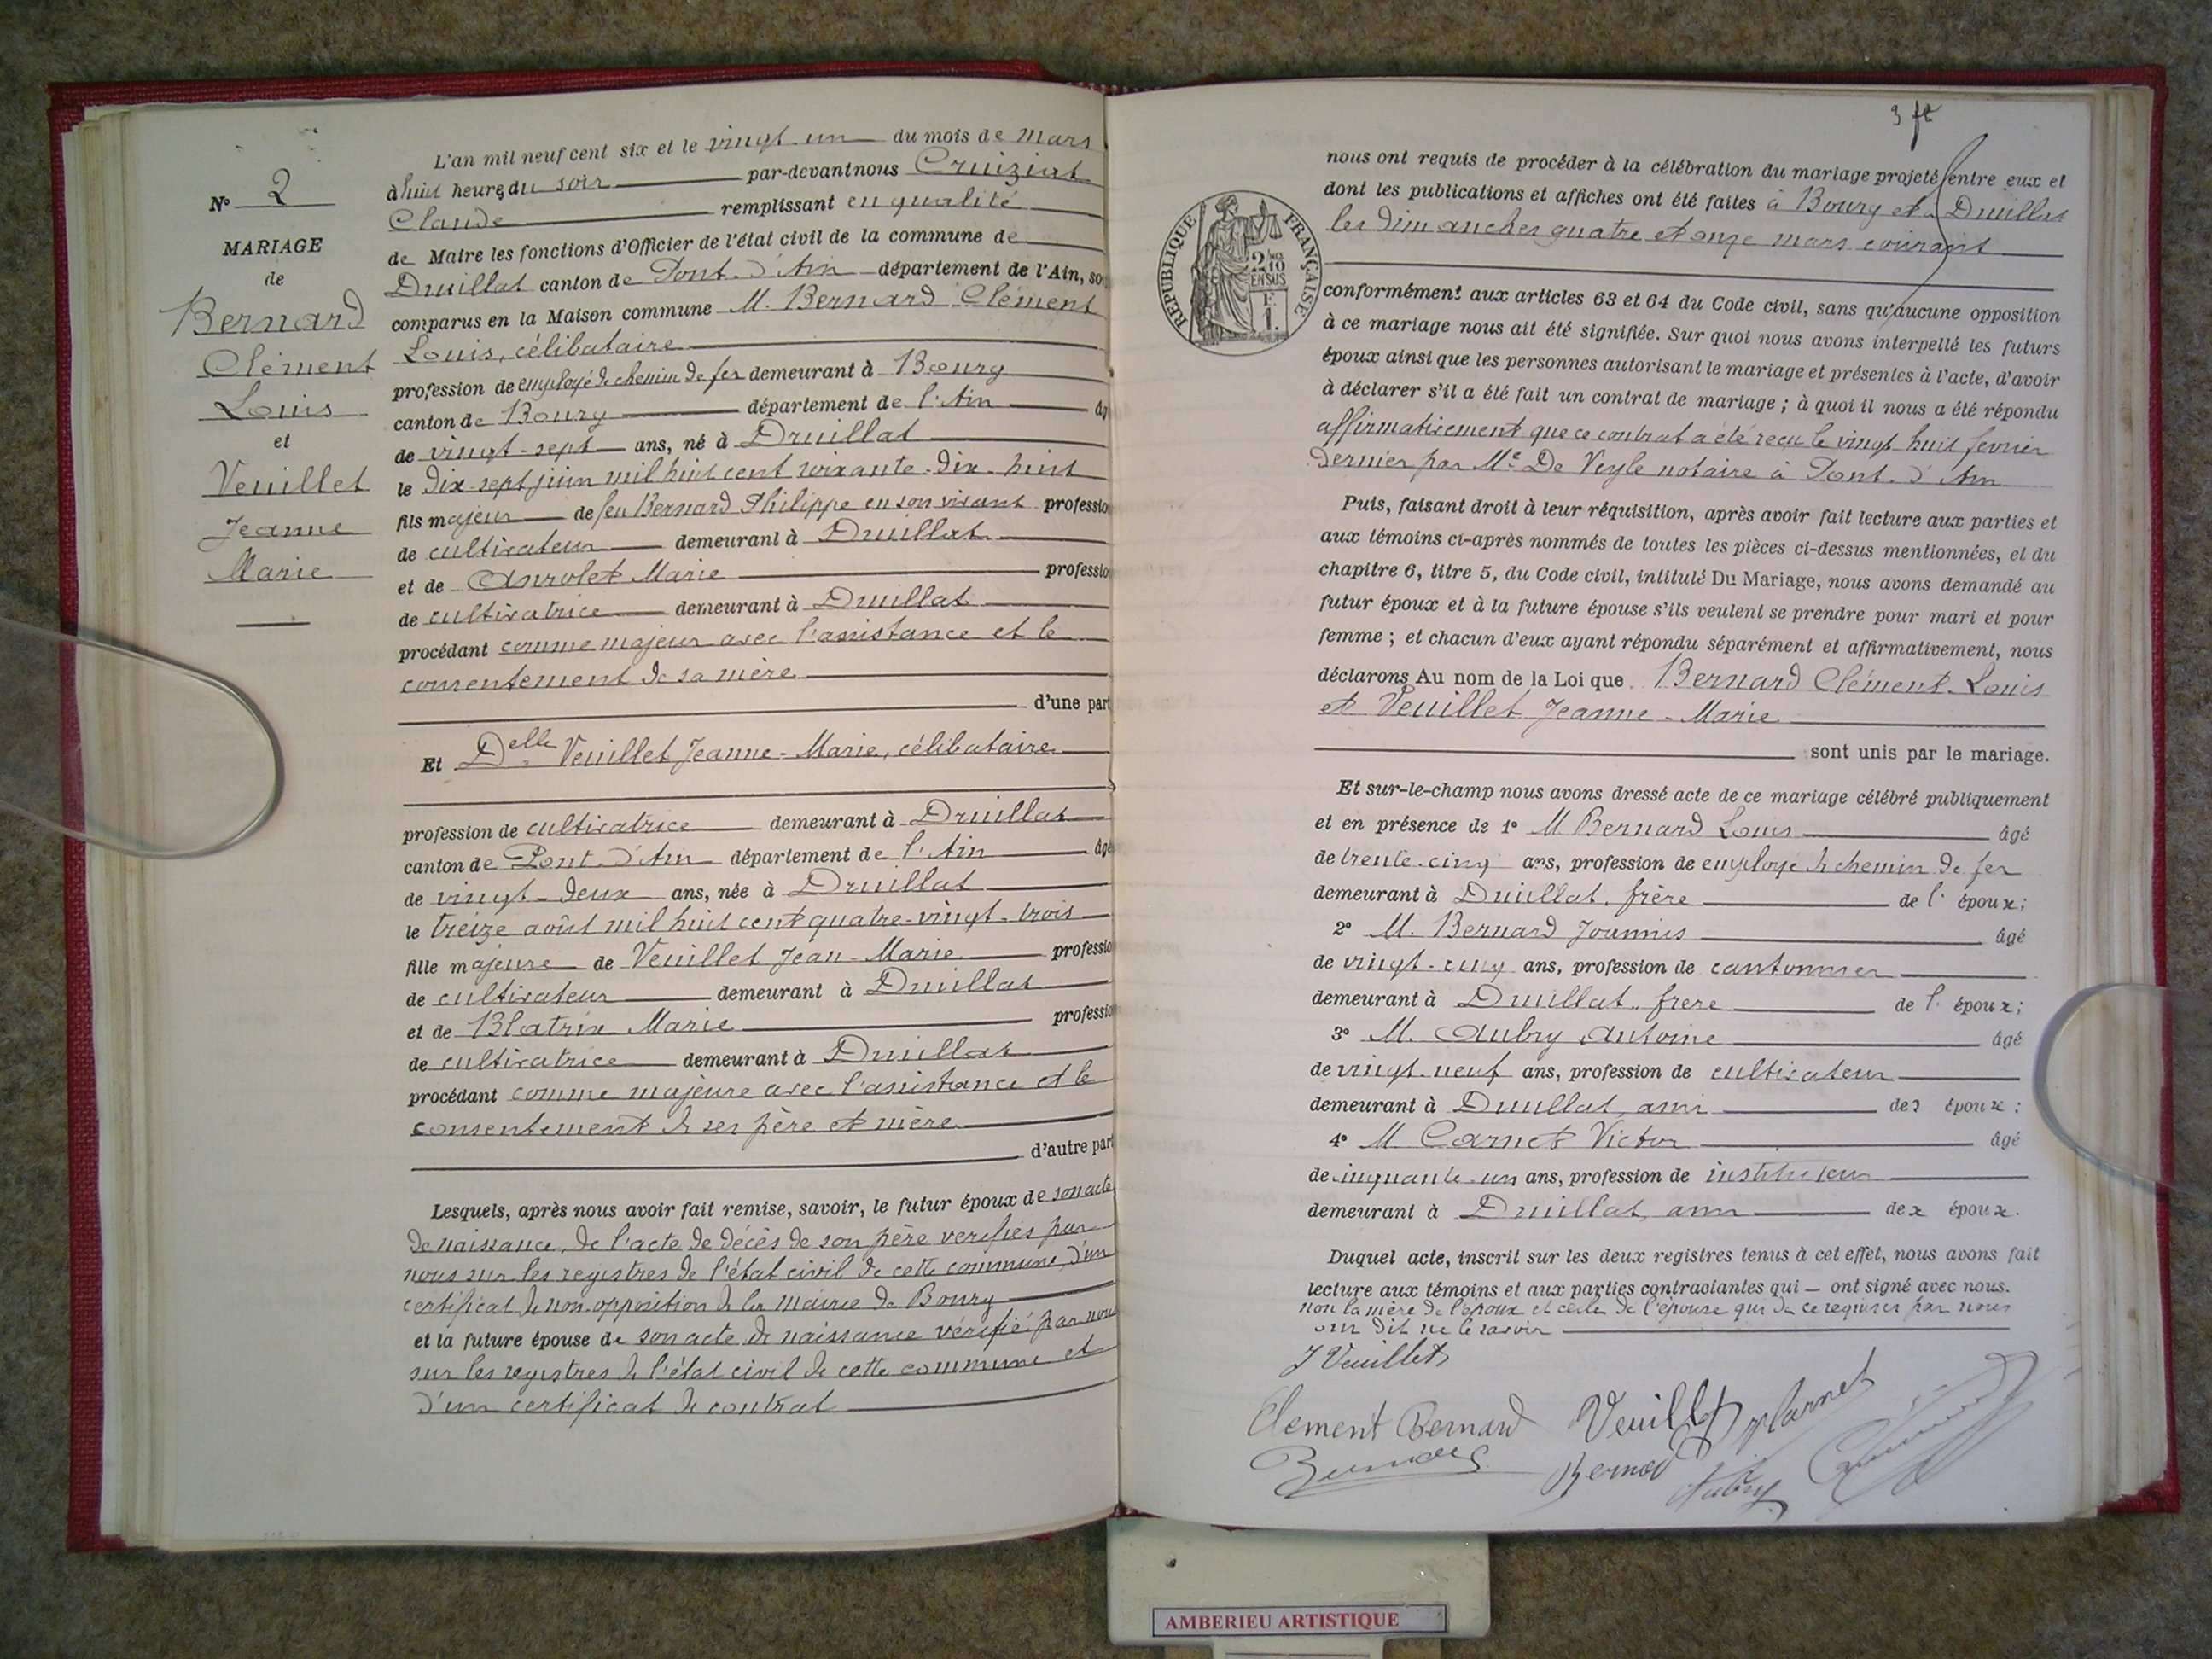 N° 2
MARIAGE
de
Bernard
Clément
Louis
et
Veuillet
Jeanne
Marie
L'an mil neuf cent six et le vingt-un du mois de Mars
à huit heures du soir par-devant nous Cruiziat
Claude remplissant en qualité
de Maire les fonctions d'Officier de l'état civil de la commune de
Druillat canton de Pont-d'Ain département de l'Ain, so
comparus en la Maison commune M. Bernard Clément
Louis, célibataire
profession de employé de chemin de fer demeurant à Bourg
canton de Bourg département de l'Ain âg
de vingt-sept ans, né à Druillat
le dix-sept juin mil huit cent soixante-dix-huit
fils majeur de feu Bernard Philippe en son vivant professio
de cultivateur demeurant à Druillat
et de Marie professio
de cultivatrice demeurant à Druillat
procédant comme majeur avec l'assistance et le
consentement de sa mère
d'une part
Et Delle Veuillet Jeanne-Marie, célibataire
profession de cultivatrice demeurant à Druillat
canton de Pont-d'Ain département de l'Ain âgé
de vingt-deux ans, née à Druillat
le treize août mil huit cent quatre-vingt-trois
fille majeure de Veuillet Jean-Marie professio
de cultivateur demeurant à Druillat
et de Blatrix Marie professio
de cultivatrice demeurant à Druillat
procédant comme majeure avec l'assistance et le
consentement de ses père et mère
d'autre part
Lesquels, après nous avoir fait remise, savoir, le futur époux de son acte
de naissance, de l'acte de décès de son père vérifiés par
nous sur les registres de l'état civil de cette commune, d'un
certificat de non-opposition de la Mairie de Bourg
et la future épouse de son acte de naissance vérifié par nous
sur les registres de l'état civil de cette commune et
d'un certificat de contrat
nous ont requis de procéder à la célébration du mariage projeté entre eux et
dont les publications et affiches ont été faites à Bourg et Druillat
les dimanches quatre et onze mars courant
RÉPUBLIQUE FRANÇAISE
2/10
EN SUS
1F.
conformément aux articles 63 et 64 du Code civil, sans qu'aucune opposition
à ce mariage nous ait été signifiée. Sur quoi nous avons interpellé les futurs
époux ainsi que les personnes autorisant le mariage et présentes à l'acte, d'avoir
à déclarer s'il a été fait un contrat de mariage ; à quoi il nous a été répondu
affirmativement que ce contrat a été reçu le vingt huit février
dernier par Me De Veyle notaire à Pont-d'Ain
Puis, faisant droit à leur réquisition, après avoir fait lecture aux parties et
aux témoins ci-après nommés de toutes les pièces ci-dessus mentionnées, et du
chapitre 6, titre 5, du Code civil, intitulé Du Mariage, nous avons demandé au
futur époux et à la future épouse s'ils veulent se prendre pour mari et pour
femme ; et chacun d'eux ayant répondu séparément et affirmativement, nous
déclarons Au nom de la Loi que Bernard Clément-Louis
et Veuillet Jeanne-Marie
sont unis par le mariage.
Et sur-le-champ nous avons dressé acte de ce mariage célébré publiquement
et en présence de 1° M Bernard Louis âgé
de trente-cinq ans, profession de employé de chemin de fer
demeurant à Druillat, frère de l' époux ;
2° M. Bernard Joannis âgé
de vingt-cinq ans, profession de cantonnier
demeurant à Druillat, frère de l' époux ;
3° M. Aubry Antoine âgé
de vingt-neuf ans, profession de cultivateur
demeurant à Druillat, ami des époux ;
4° M Carnet Victor âgé
de cinquante-un ans, profession de instituteur
demeurant à Druillat, ami des époux.
Duquel acte, inscrit sur les deux registres tenus à cet effet, nous avons fait
lecture aux témoins et aux parties contractantes qui — ont signé avec nous.
non la mère de l'époux et celle de l'épouse qui de ce requises par nous
ont dit ne le savoir
J Veuillet
Clement Bernard Veuillet Carnet
Bernard Bernard Aubry
AMBERIEU ARTISTIQUE